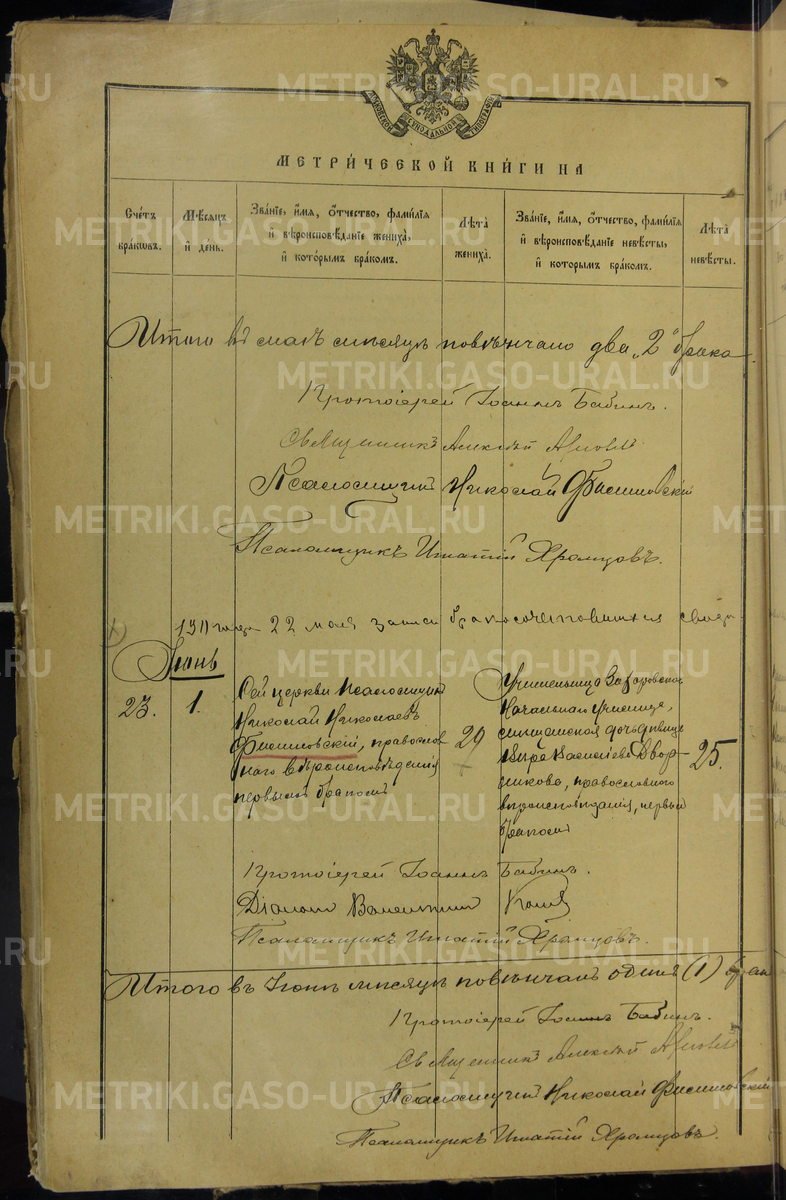 МОСКОВСКОЙ СУНОДАЛЬНОЙ ТИПОГРАФІИ
МЕТРИ́ЧЕСКОЙ КНИ́ГИ НА
Счетъ браковъ.
Мѣсяцъ и день.
Званіе, имя, отчество, фамилія и вѣроисповѣданіе жениха, и которымъ бракомъ.
Лѣта жениха.
Званіе, имя, отчество, фамилія и вѣроисповѣданіе невѣсты, и которымъ бракомъ.
Лѣта невѣсты.
Итого въ маѣ мѣсяцѣ повѣнчано два „2" брака
Протоіерей Іоаннъ Бабинъ.
Священникъ Алексѣй
Псаломщикъ Николай
Псаломщикъ Игнатій Храмцовъ.
22 мая записи бракосочетавшихся
Іюнь
23.
1.
Сей церкви псаломщикъ
Николай Николаевъ
православ
наго вѣроисповѣданія
первымъ бракомъ
29
Учительница
Начальнаго училища,
дочь дѣвица
Вѣра Васильева Двор
никова, православнаго
вѣроисповѣданія, первымъ
бракомъ
25.
Протоіерей Іоаннъ Бабинъ.
Діаконъ Валентинъ
Псаломщикъ Игнатій Храмцовъ.
Итого въ Іюнѣ мѣсяцѣ повѣнчанъ одинъ (1) брак
Протоіерей Іоаннъ Бабинъ.
Священникъ Алексѣй
Псаломщикъ Николай
Псаломщикъ Игнатій Храмцовъ.
METRIKI.GASO-URAL.RU